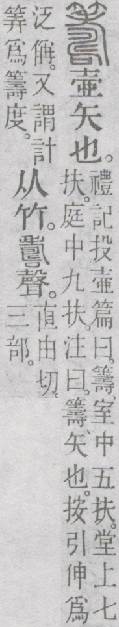 籌壺矢也。
禮記投壺篇曰。籌、室中五扶。堂上七
扶。庭中九扶。注曰。籌、矢也。按引伸爲
泛偁。又謂計
筭爲籌度。
从竹。𠷎聲。
直由切。
三部。